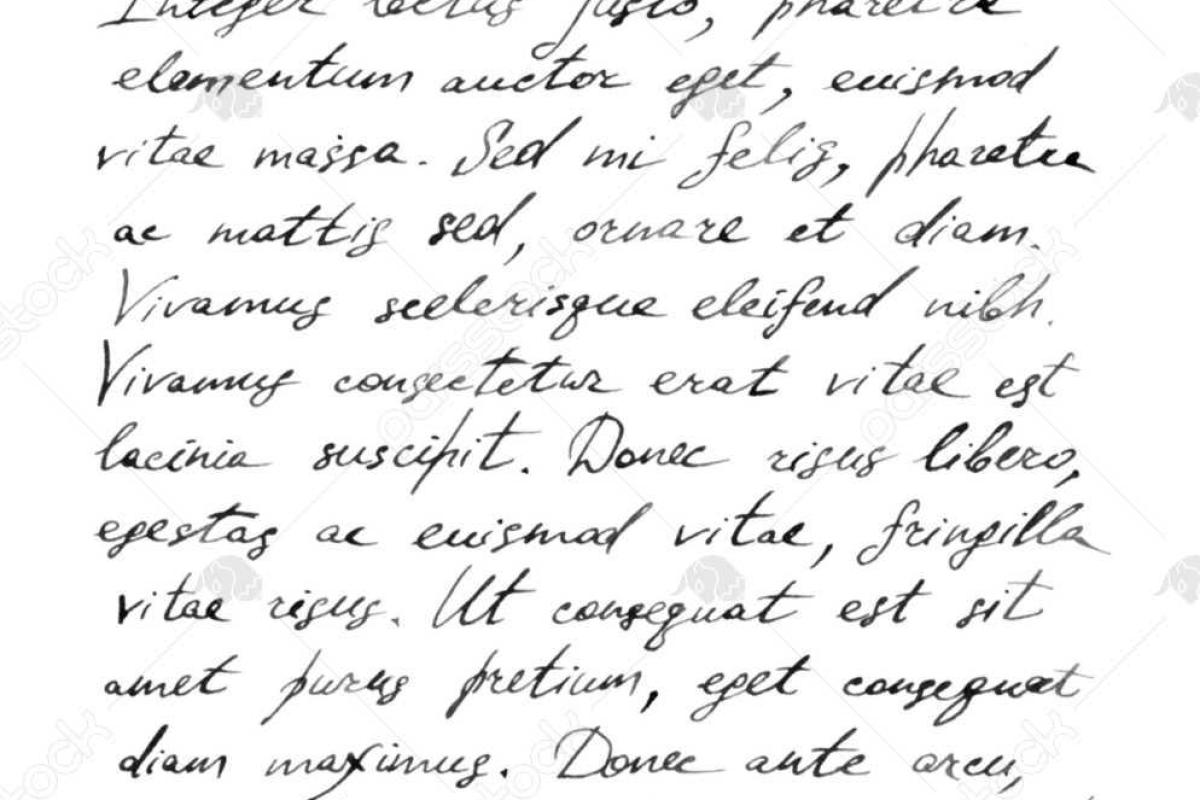 Integer lectus justo, pharetra
elementum auctor eget, euismod
vitae massa. Sed mi felis, pharetra
ac mattis sed, ornare et diam.
Vivamus scelerisque eleifend nibh.
Vivamus consectetur erat vitae est
lacinia suscipit. Donec risus libero,
egestas ac euismod vitae, fringilla
vitae risus. Ut consequat est sit
amet purus pretium, eget consequat
diam maximus. Donec ante arcu,